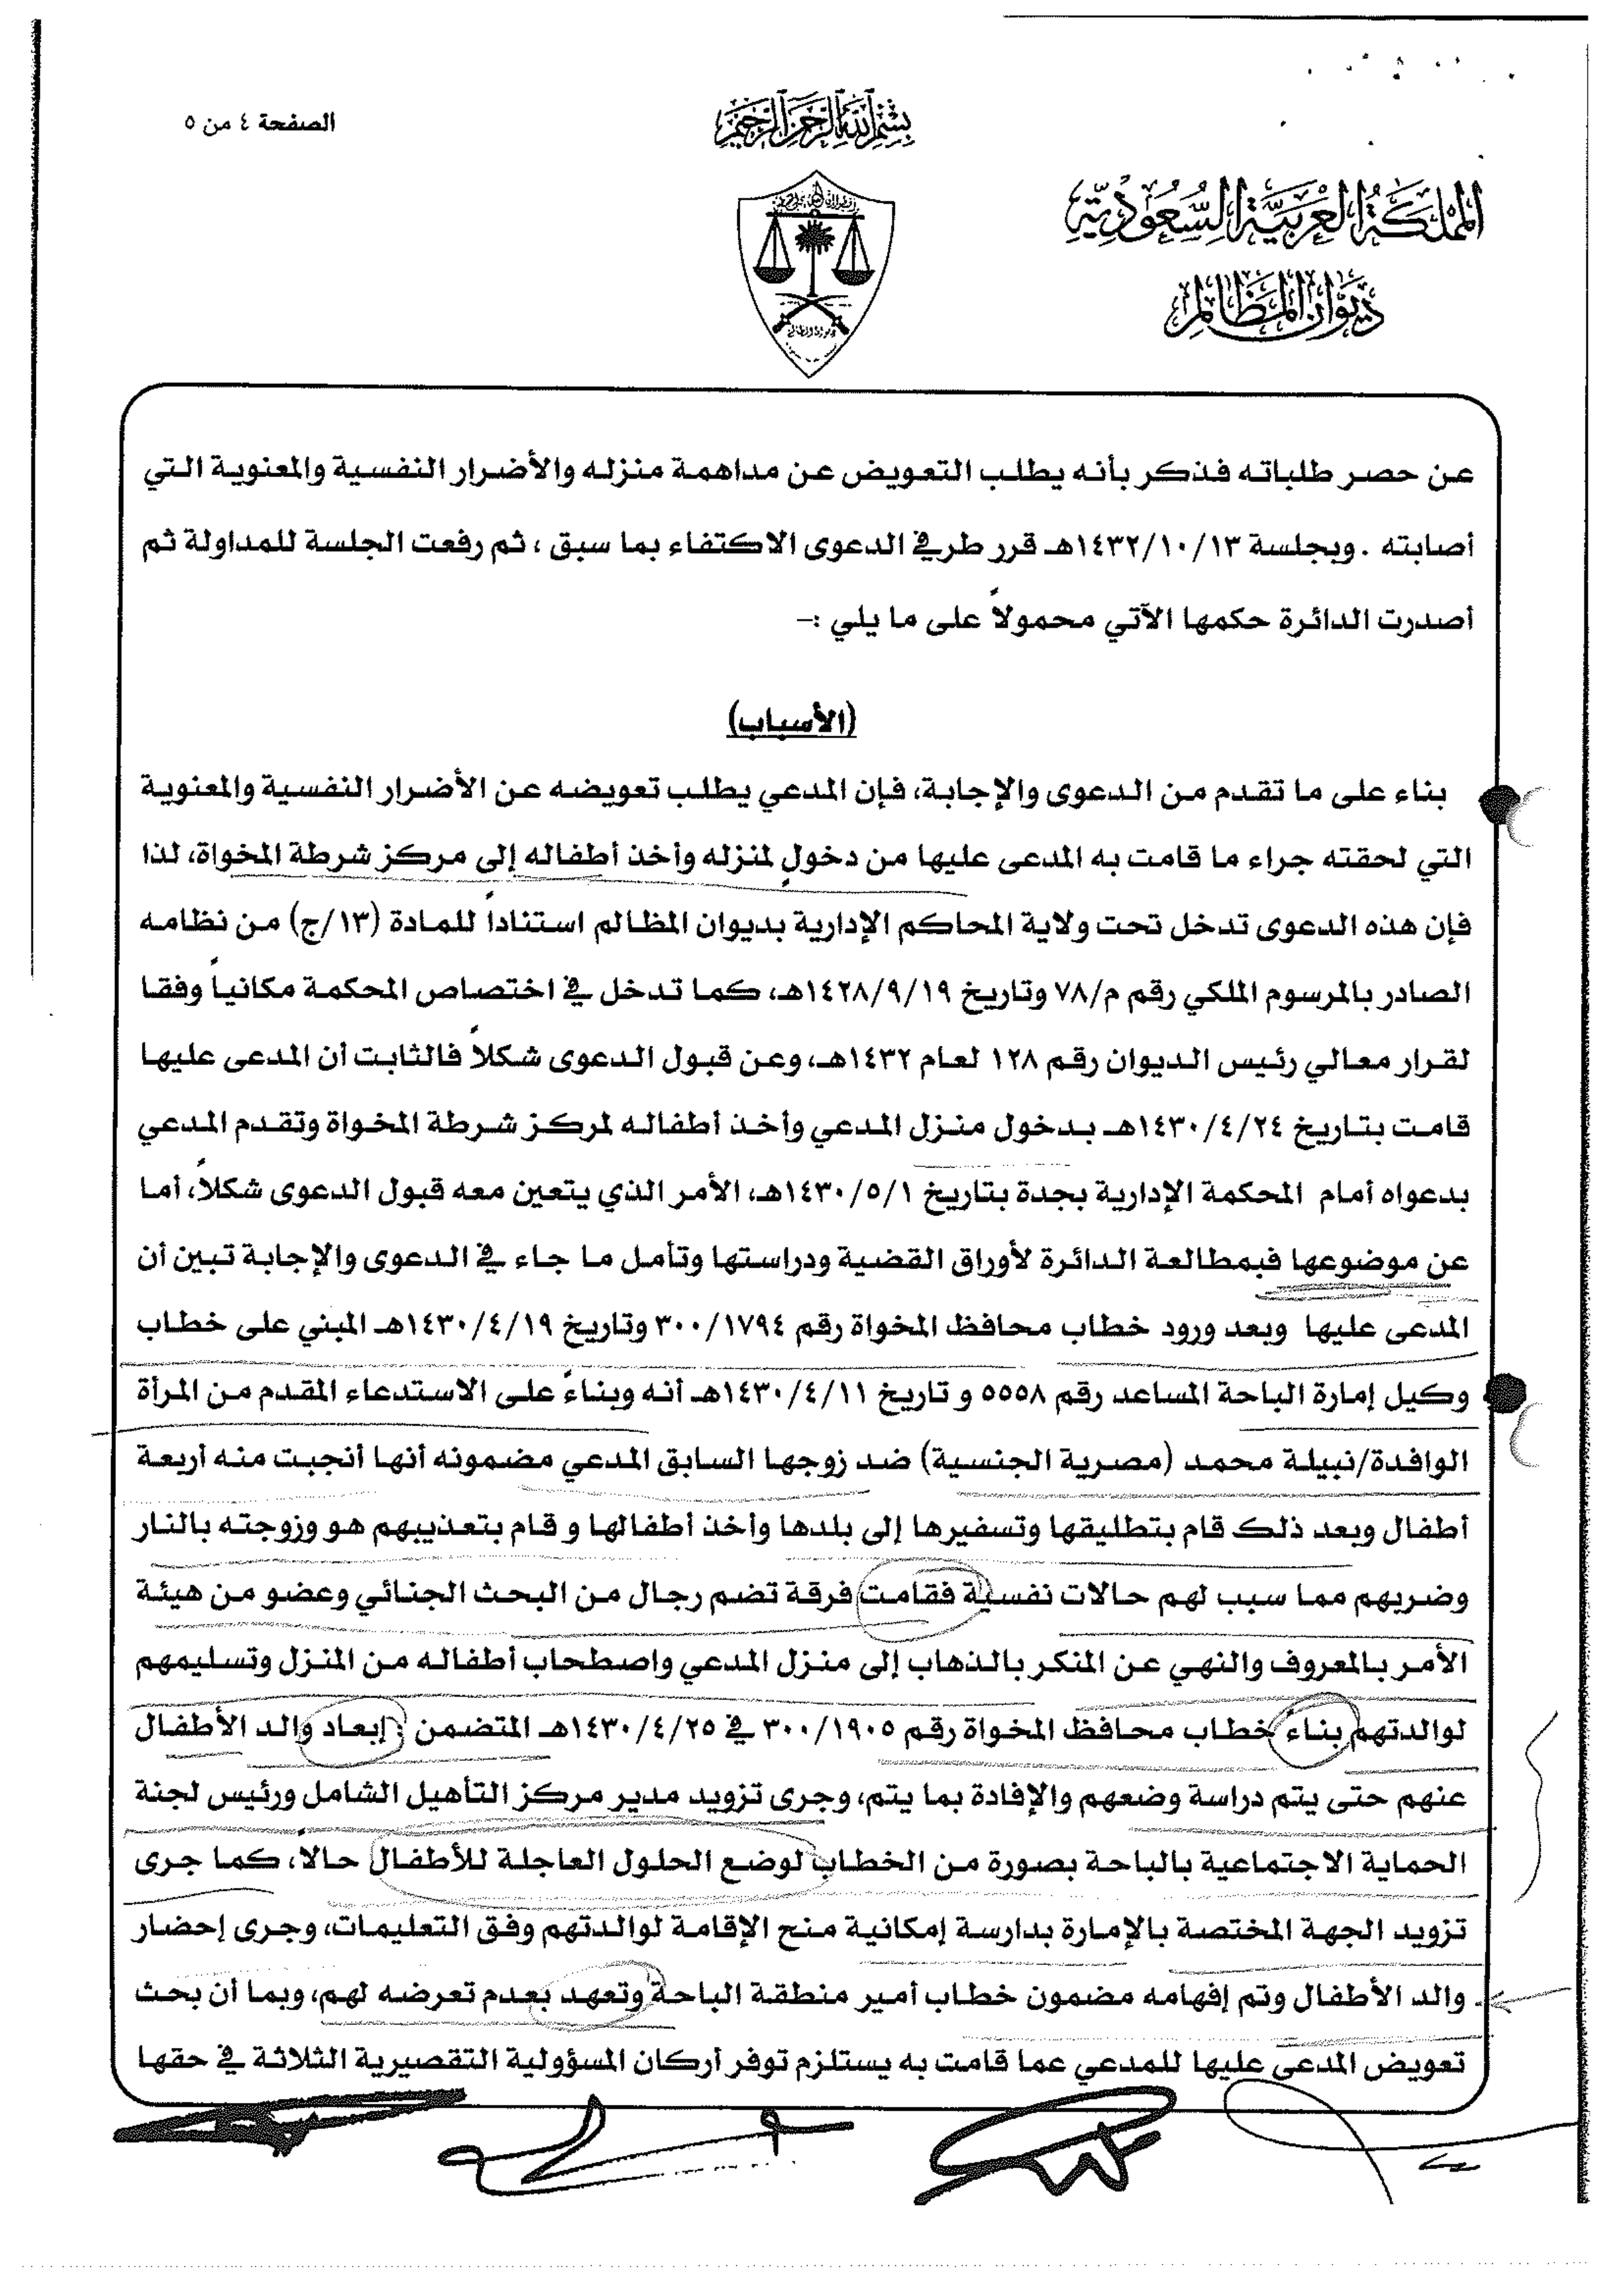 الصفحة ٤ من ٥
بسم الله الرحمن الرحيم
المملكة العربية السعودية
ديوان المظالم
عن حصر طلباته فذكر بأنه يطلب التعويض عن مداهمة منزله والأضرار النفسية والمعنوية التي
أصابته . وبجلسة ١٤٣٢/١٠/١٣هـ قرر طرفي الدعوى الاكتفاء بما سبق ، ثم رفعت الجلسة للمداولة ثم
أصدرت الدائرة حكمها الآتي محمولاً على ما يلي :-
(الأسباب)
بناء على ما تقدم من الدعوى والإجابة، فإن المدعي يطلب تعويضه عن الأضرار النفسية والمعنوية
التي لحقته جراء ما قامت به المدعى عليها من دخولٍ لمنزله وأخذ أطفاله إلى مركز شرطة المخواة، لذا
فإن هذه الدعوى تدخل تحت ولاية المحاكم الإدارية بديوان المظالم استناداً للمادة (١٣/ج) من نظامه
الصادر بالمرسوم الملكي رقم م/٧٨ وتاريخ ١٤٢٨/٩/١٩هـ، كما تدخل في اختصاص المحكمة مكانياً وفقا
لقرار معالي رئيس الديوان رقم ١٢٨ لعام ١٤٣٢هـ، وعن قبول الدعوى شكلاً فالثابت أن المدعى عليها
قامت بتاريخ ١٤٣٠/٤/٢٤هـ بدخول منزل المدعي وأخذ أطفاله لمركز شرطة المخواة وتقدم المدعي
بدعواه أمام المحكمة الإدارية بجدة بتاريخ ١٤٣٠/٥/١هـ، الأمر الذي يتعين معه قبول الدعوى شكلاً، أما
عن موضوعها فبمطالعة الدائرة لأوراق القضية ودراستها وتأمل ما جاء في الدعوى والإجابة تبين أن
المدعى عليها وبعد ورود خطاب محافظ المخواة رقم ٣٠٠/١٧٩٤ وتاريخ ١٤٣٠/٤/١٩هـ المبني على خطاب
وكيل إمارة الباحة المساعد رقم ٥٥٥٨ و تاريخ ١٤٣٠/٤/١١هـ أنه وبناءً على الاستدعاء المقدم من المرأة
الوافدة/نبيلة محمد (مصرية الجنسية) ضد زوجها السابق المدعي مضمونه أنها أنجبت منه أربعة
أطفال وبعد ذلك قام بتطليقها وتسفيرها إلى بلدها وأخذ أطفالها و قام بتعذيبهم هو وزوجته بالنار
وضربهم مما سبب لهم حالات نفسية فقامت فرقة تضم رجال من البحث الجنائي وعضو من هيئة
الأمر بالمعروف والنهي عن المنكر بالذهاب إلى منزل المدعي واصطحاب أطفاله من المنزل وتسليمهم
لوالدتهم بناءً خطاب محافظ المخواة رقم ٣٠٠/١٩٠٥ في ١٤٣٠/٤/٢٥هـ المتضمن : إبعاد والد الأطفال
عنهم حتى يتم دراسة وضعهم والإفادة بما يتم، وجرى تزويد مدير مركز التأهيل الشامل ورئيس لجنة
الحماية الاجتماعية بالباحة بصورة من الخطاب لوضع الحلول العاجلة للأطفال حالاً، كما جرى
تزويد الجهة المختصة بالإمارة بدارسة إمكانية منح الإقامة لوالدتهم وفق التعليمات، وجرى إحضار
والد الأطفال وتم إفهامه مضمون خطاب أمير منطقة الباحة وتعهد بعدم تعرضه لهم، وبما أن بحث
تعويض المدعى عليها للمدعي عما قامت به يستلزم توفر أركان المسؤولية التقصيرية الثلاثة في حقها